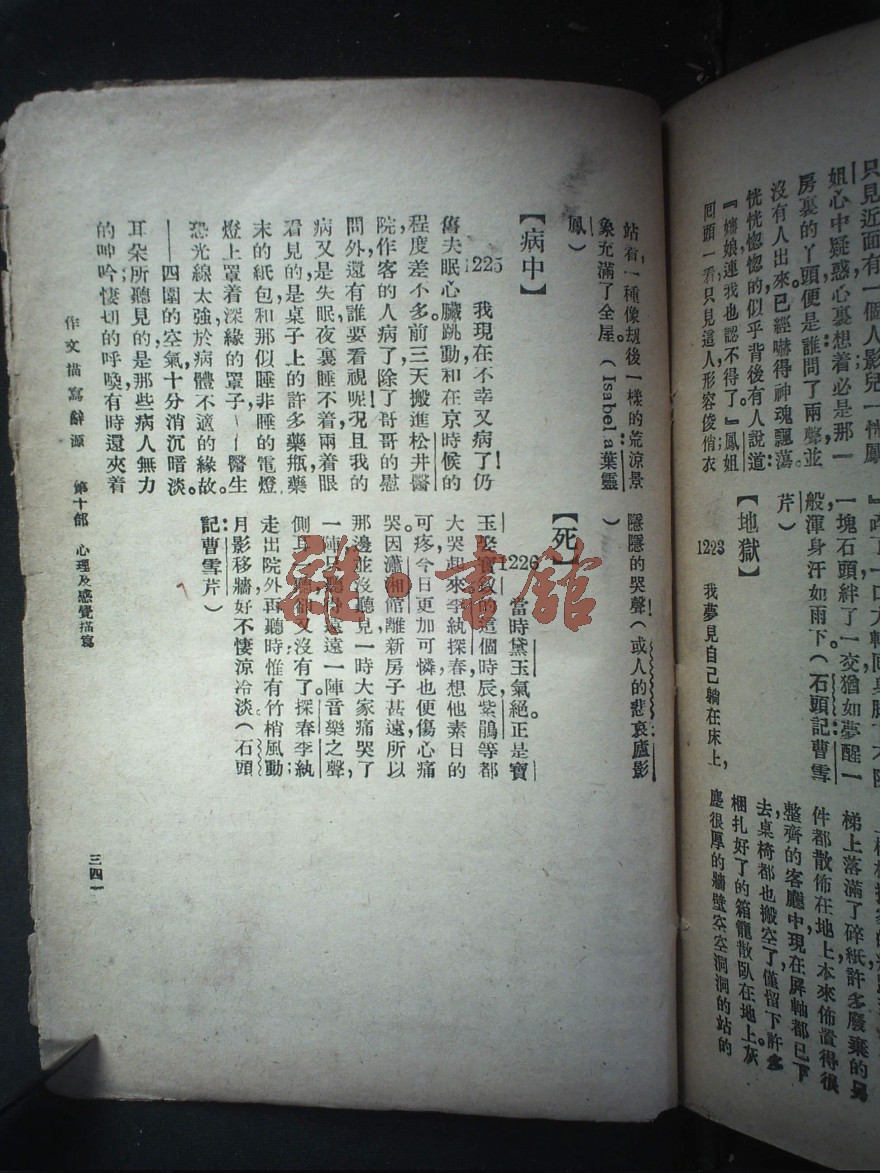 只見近面有一個人影兒一恍鳳
姐心中疑惑心裏想着必是那一
房裏的丫頭便是誰問了兩聲並
沒有人出來已經嚇得神魂飄蕩
恍恍惚惚的似乎背後有人說道：
『嬸娘連我也認不得了。』鳳姐
囘頭一看只見這人形容俊俏衣
一塊石頭絆了一交猶如夢醒一
般渾身汗如雨下。（石頭記：曹雪
芹）
【地獄】
1223 我夢見自己躺在床上，
梯上落滿了碎紙許多廢棄的另
件都散佈在地上本來佈置得很
整齊的客廳中，現在屏軸都已下
去，桌椅都也搬空了僅留下許多
梱扎好了的箱籠散臥在地上。灰
塵很厚的牆壁空空洞洞的站的
站着，一種像刼後一樣的荒涼景
象充滿了全屋。（Isabela：葉靈
鳳）
【病中】
1225 我現在不幸又病了！仍
舊失眠心臟跳動，和在京時候的
程度差不多。前三天搬進松井醫
院。作客的人病了，除了哥哥的慰
問外還有誰要看視呢！況且我的
病又是失眠，夜裏睡不着，兩着眼
看見的是桌子上的許多藥瓶，藥
末的紙包，和那似睡非睡的電燈，
燈上罩着深綠的罩子——醫生
恐光線太強，於病體不適的緣故。
——四圍的空氣十分消沉暗淡。
耳朵所聽見的是那些病人無力
的呻吟；悽切的呼喚，有時還夾着
隱隱的哭聲！（或人的悲哀：廬影
）
【死】
1226 當時黛玉氣絕，正是寶
玉娶寶釵的這個時辰。紫鵑等都
大哭起來。李紈探春想他素日的
可疼，今日更加可憐，也便傷心痛
哭。因瀟湘館離新房子甚遠，所以
那邊並沒聽見。一時，大家痛哭了
一陣，只聽得遠遠一陣音樂之聲，
側耳一聽，卻又沒有了。探春李紈
走出院外再聽時，惟有竹梢風動；
月影移牆，好不悽涼冷淡。（石頭
記：曹雪芹）
作文描寫辭源 第十部 心理及感覺描寫
三四一
雜·書館